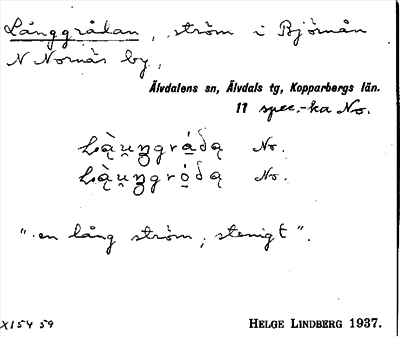 Långgrådan, ström i Björnån
N Nornäs by,
Älvdalens sn, Älvdals tg, Kopparbergs län.
11 spec.-ka No.
No.
No.
"en lång ström, stenigt".
X1549 59
HELGE LINDBERG 1937.